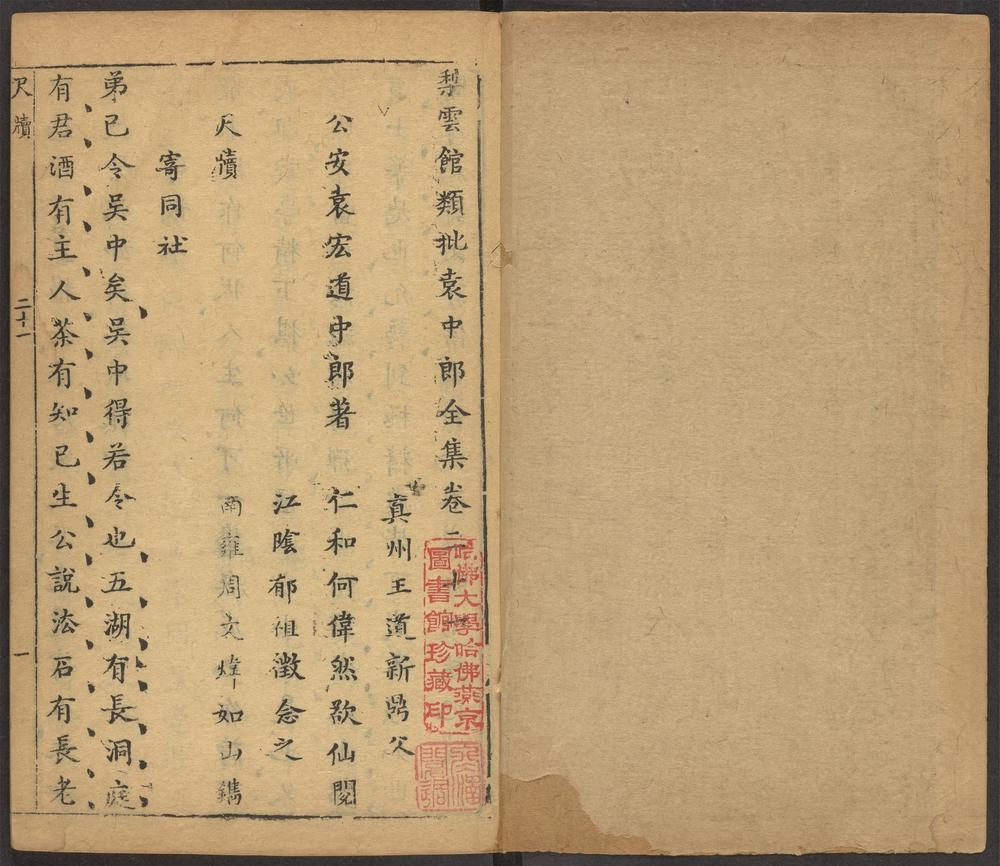 梨雲館類批袁中郎全集卷二十一
真州王道新鼎父
公安袁宏道中郎著 仁和何偉然欲仙閱
江陰郁祖徵念之
尺牘 南雍周文煒如山鐫
寄同社
弟已令吳中矣吳中得若令也五湖有長洞庭
有君酒有主人茶有知已生公說法石有長老
尺牘 二十一 一
哈佛大學哈佛燕京
圖書館珍藏印